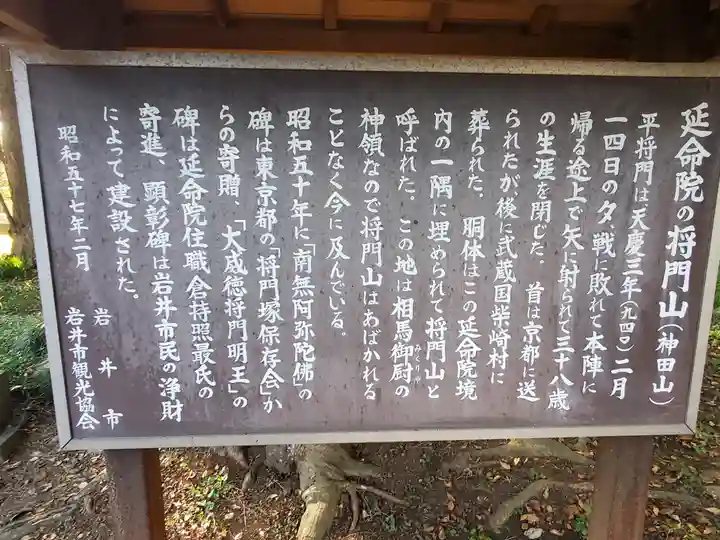 延命院の将門山(神田山)
平将門は天慶三年(九四〇)二月
一四日の夕、戦に敗れて本陣に
帰る途上で矢に射られて三十八歳
の生涯を閉じた。首は京都に送
られたが、後に武蔵国柴崎村に
葬られた。胴体はこの延命院境
内の一隅に埋められて将門山と
呼ばれた。この地は相馬御厨の
みくりや
神領なので将門山はあばかれる
ことなく今に及んでいる。
昭和五十年に「南無阿弥陀佛」の
碑は東京都の「将門塚保存会」か
らの寄贈、「大威徳将門明王」の
碑は延命院住職倉持照最氏の
寄進、顕彰碑は岩井市民の浄財
によって建設された。
昭和五十七年二月
岩井市
岩井市観光協会